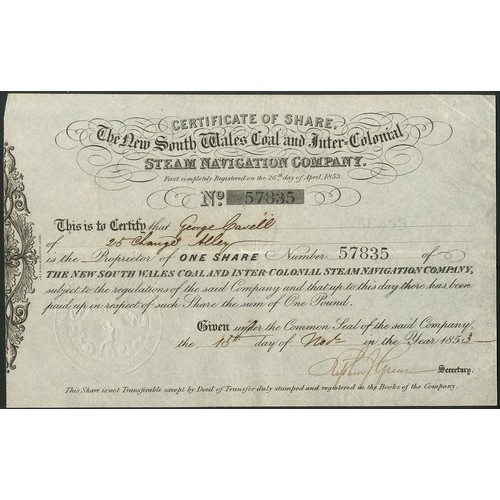 CERTIFICATE OF SHARE.
The New South Wales Coal and Inter-Colonial
STEAM NAVIGATION COMPANY.
First completely Registered on the 26th day of April, 1853.
No 57835
This is to Certify that George Cavell
of 25 Change Alley
is the Proprietor of ONE SHARE Number 57835 of
THE NEW SOUTH WALES COAL AND INTER-COLONIAL STEAM NAVIGATION COMPANY,
subject to the regulations of the said Company and that up to this day there has been
paid up in respect of such Share the sum of One Pound.
Given under the Common Seal of the said Company,
the 15th day of Nov. in the Year 1853
Secretary.
This Share is not Transferable except by Deed of Transfer duly stamped and registered in the Books of the Company.